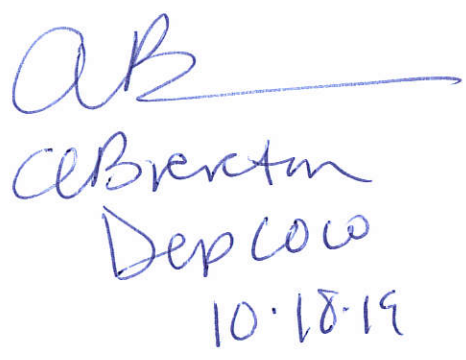 AB
CEBrereton
Dep COCO
10.18.19